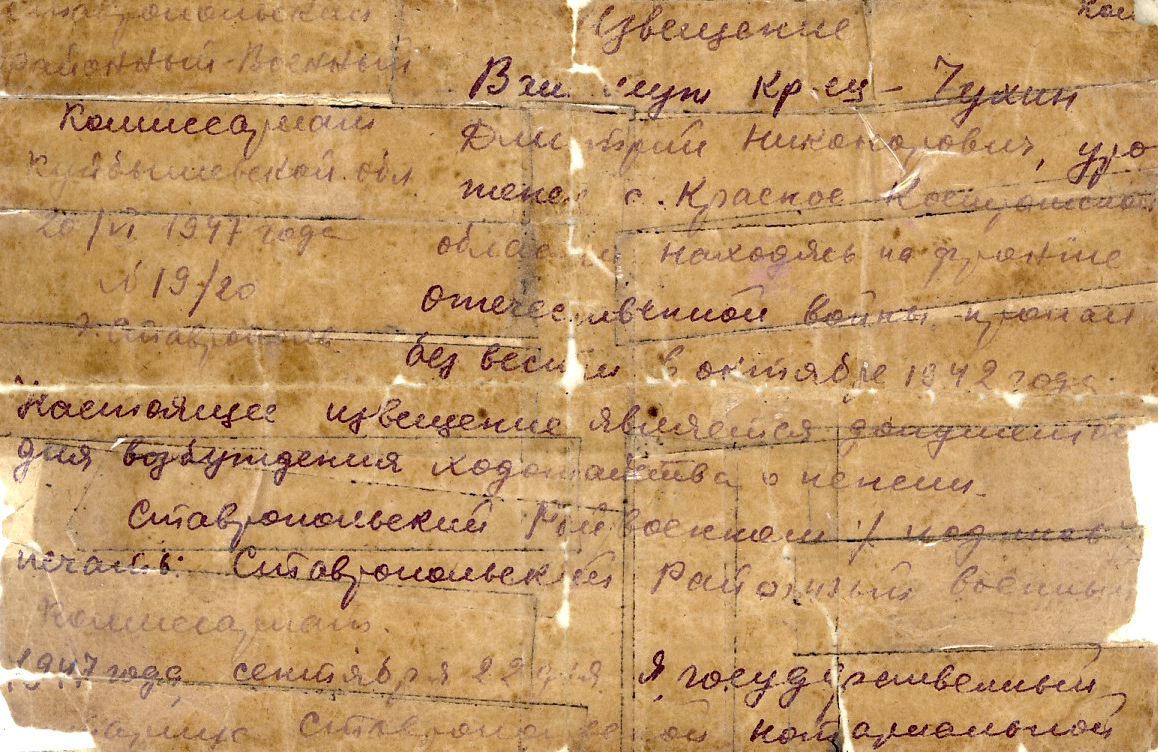 Ставропольский
Районный Военный
Комиссариат
Куйбышевской обл.
20/VI 1947 года
N 19/20
г. Ставрополь
Коп
Извещение
Ваш муж кр-ец - Чухин
Дмитрий Никонорович, уро
женец с. Красное Костромской
области находясь на фронте
отечественной войны пропал
без вести в октябре 1942 года.
Настоящее извещение является документом
для возбуждения ходотайства о пенсии.
Ставропольский Райвоенком /подпись
печать: Ставропольский Районный военный
Комиссариат.
1947 года сентября 22 дня Я, государственный
нотариус Ставропольской нотариальной